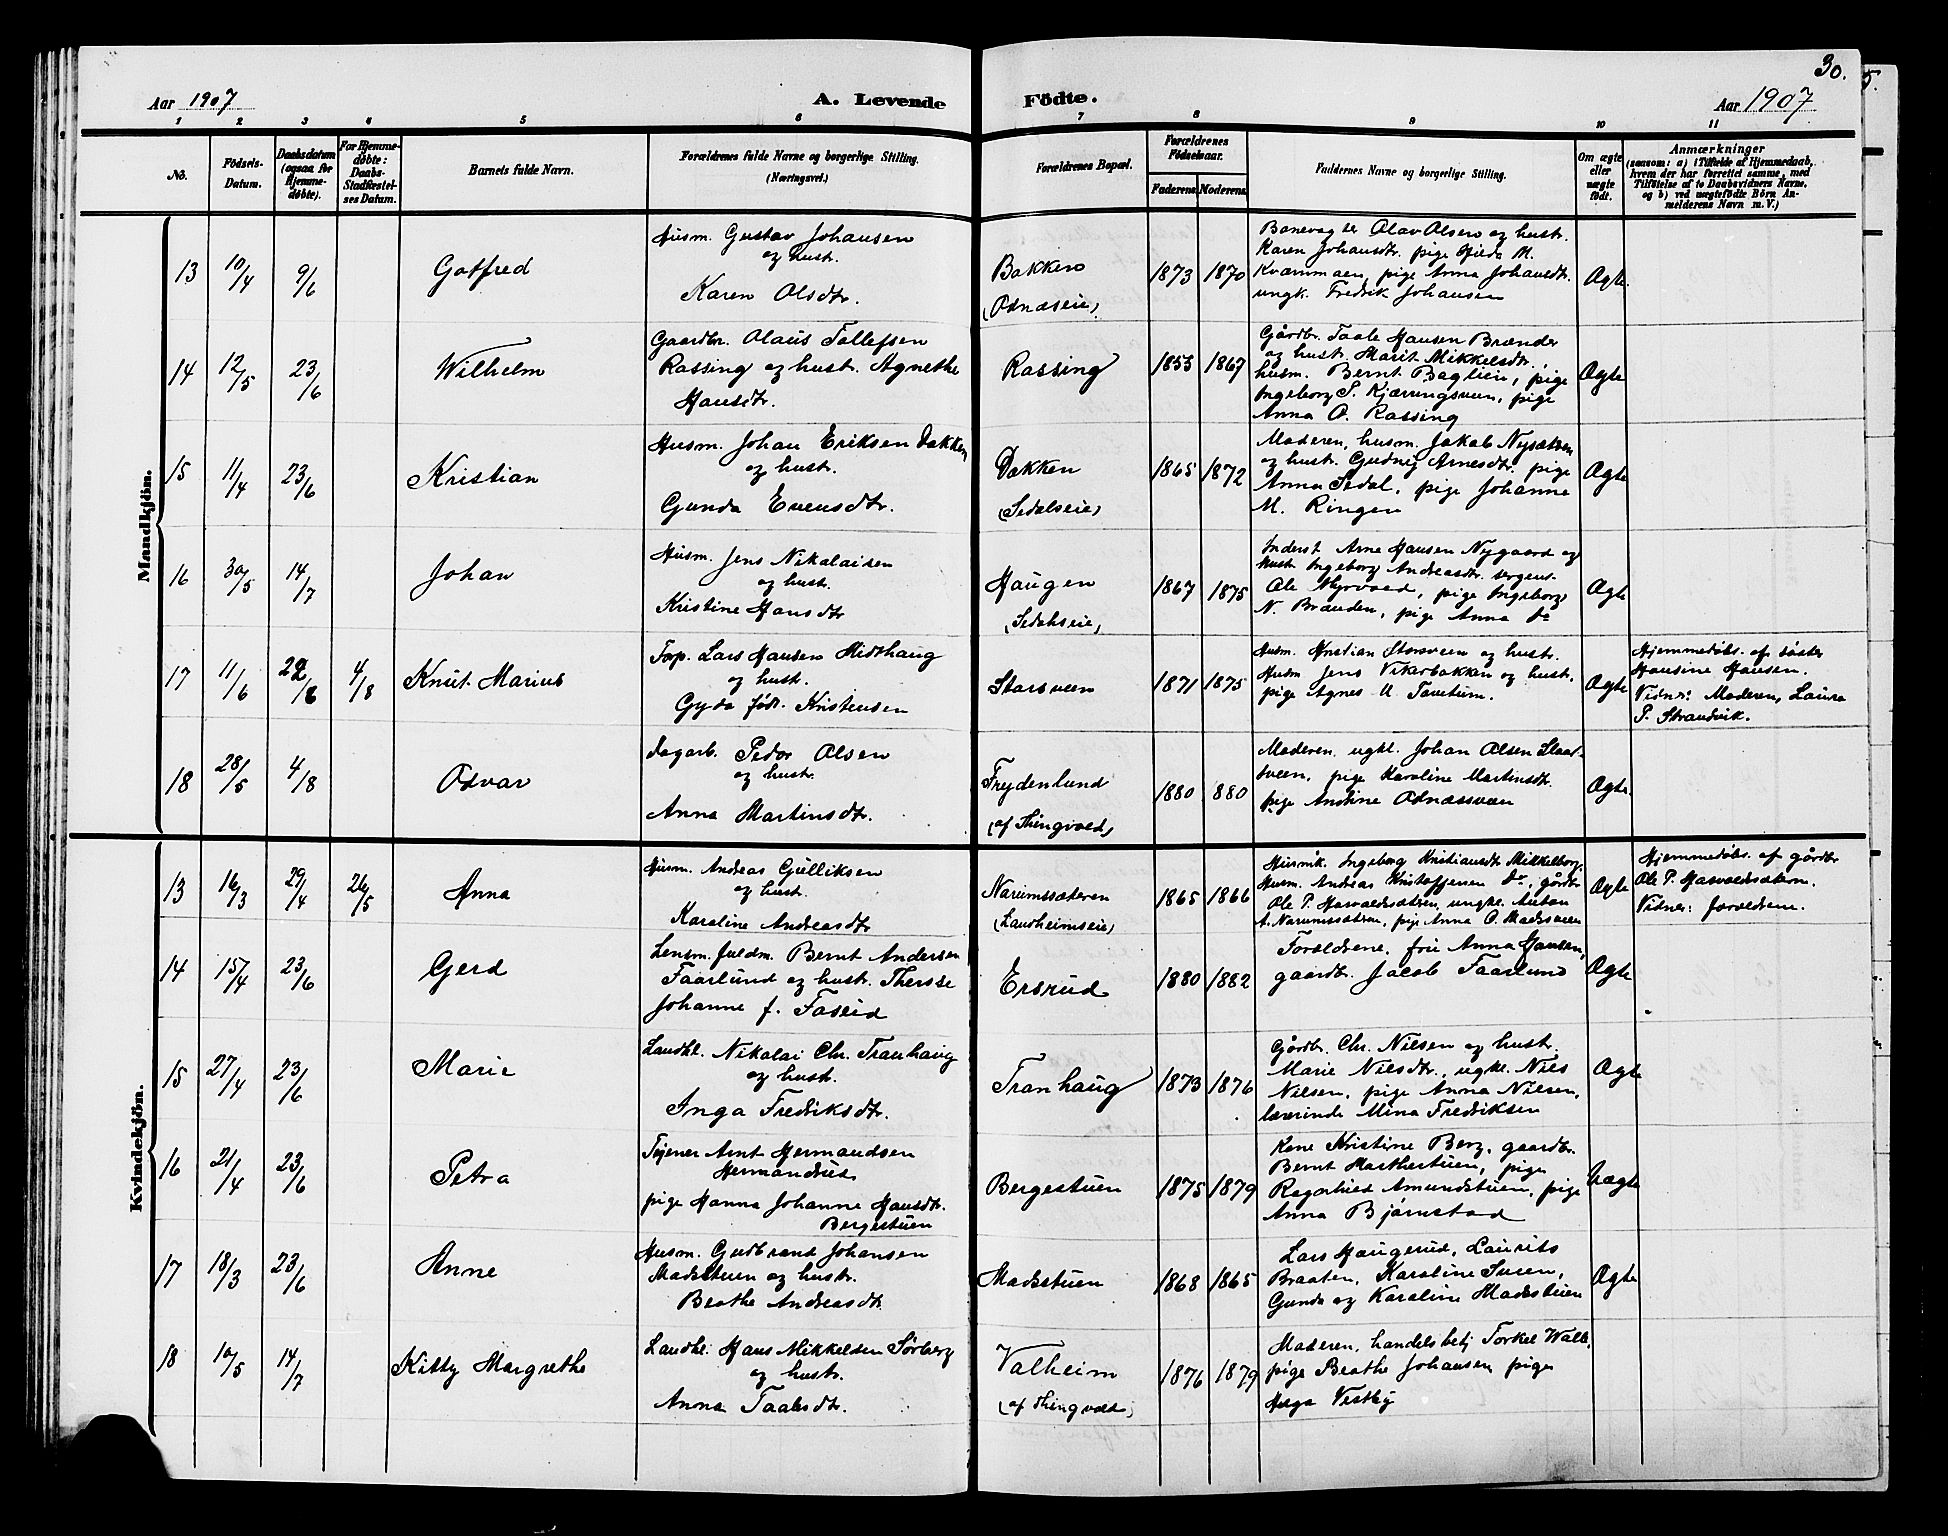 30.
Aar 1907 A. Levende Födte. Aar 1907
1 2 3 4 5 6 7 8 9 10 11
No.
Födsels-
Datum.
Daabsdatum
(ogsaa for
Hjemme-
döbte).
For Hjemme-
döbte:
Daabs-
Stadfæstel-
ses Datum.
Barnets fulde Navn.
Forældrenes fulde Navne og borgerlige Stilling.
(Næringsvei.)
Forældrenes Bopæl.
Forældrenes
Födselsaar.
Faderens. Moderens.
Faddernes Navne og borgerlige Stilling.
Om ægte
eller
uægte
födt.
Anmærkninger
(saasom: a) i Tilfælde af Hjemmedaab,
hvem der har forrettet samme, med
Tilföielse af to Daabsvidners Navne,
og b) ved uægtefödte Börn An-
melderens Navn m. V.)
Mandkjön.
13 10/4 9/6 Gotfred
Husm. Gustav Johansen
og hustr.
Karen Olsdtr.
Bakken
(Odnæseie)
1873 1870
Banevagter Olav Olsen og hustr.
Karen Johansdtr. pige Hilda M.
Kværnmoen, pige Anna Johansdtr.
ungk. Fredrik Johansen
Ægte.
14 12/5 23/6 Wilhelm
Gaardbr. Olaus Tollefsen
Rossing og hustr. Agnethe
Hansdtr.
Rossing
1853 1867
Gårdbr. Taale Hansen Brænder
og hustr. Marit Mikkelsdtr.,
husm. Bernt Baglien, pige
Ingeborg P. Kjærringsveen, pige
Anna O. Rossing
Ægte
15 11/4 23/6 Kristian
Husm. Johan Eriksen Dokken
og hustr.
Gunda Evensdtr.
Dokken
(Sedalseie)
1865 1872
Moderen, husm. Jakob Nysætveen
og hustr. Gudnij Arnesdtr. pige
Anna Sedal, pige Johanne
M. Ringen
Ægte
16 30/5 14/7 Johan
Husm. Jens Nikolaisen
og hustr.
Kristine Hansdtr
Haugen
(Sedalseie)
1867 1875
Inderst Arne Hansen Nygaard og
hustr Ingeborg Andreasdtr. sergent
Ole Myrvold, pige Ingeborg
N. Brænden, pige Anna do
Ægte
17 11/6 4/8 Knut Marius
Lars Hansen Midthaug
og hustr.
Gyda född. Kristensen
Storsveen
1871 1875
Husm. Kristian Storsveen og hustr.
Husm Jens Vikerbakken og hustr.
pige Agnes U Tomtum.
Ægte
Hjemmedöbt. af söster
Hansine Hansen.
Vidner: Moderen, Laura
P. Strandvik.
18 28/5 4/8 Odvar
Dagarb. Peder Olsen
og hustr.
Anna Martinsdtr.
Frydenlund
(af Thingvold)
1880 880
Moderen, ugkl. Johan Olsen
sveen, pige Karoline Martinsdtr.
pige Andrine Odnæssveen
Ægte.
Kvindekjön.
13 16/3 29/4 26/5 Anna
Husm. Andreas Gulliksen
og hustr.
Karoline Andreasdtr
Narumsæteren
(Landheimseie)
1865 1866
Ingeborg Kristiansdtr Mikkelborg,
Husm. Andreas Kristoffersen do, gårdbr
Ole P. Hasvoldsætren, ungkl. Anton
A. Narumssætren, pige Anna O. Madssveen
Ægte
Hjemmedöbt. af gårdbr
Ole P. Hasvoldsætren.
Vidner: foræld​rene.
14 15/4 23/6 Gerd
Lensm. fuldm. Bernt Andersen
Faarlund og hustr. Therese
Johanne f. Foseid
Ersrud
1880 1882
Forældrene, fru Anna Hansen,
gaardbr. Jacob Faarlund
Ægte
15 27/4 23/6 Marie
Landhl. Nikolai Chr. Tranhaug
og hustr.
Inga Fredriksdtr.
Tranhaug
1873 1876
Gårdbr. Chr. Nilsen og hustr.
Marie Nilsdtr., ugkl. Nils
Nilsen, pige Anna Nilsen,
lærerinde Mina Fredriksen
Ægte
16 21/4 23/6 Petra
Tjener Arnt Hermandsen
Hermandrud
pige Hanna Johanne Hansdtr.
Bergestuen
Bergestuen
1875 1879
Kone Kristine Berg, gaardbr.
Bernt Marthestuen, pige
Ragnhild Amundstuen, pige
Anna Björnstad
Uægte
17 18/3 23/6 Anne
Husm. Gudbrand Johansen
Madsstuen og hustr.
Beathe Andreasdtr.
Madsstuen
1868 1865
Lars Haugerud, Laurits
Braaten, Karoline Suren,
Gunda og Karoline Madsstuen
Ægte
18 10/5 14/7 Kitty Margrethe
Landhl. Hans Mikkelsen Sörberg
og hustr.
Anna Taalesdtr.
Valheim
(af Thingvold)
1876 1879
Moderen, handelsbetj Torkel Wølle,
pige Beathe Johansen, pige
Helga Vestby